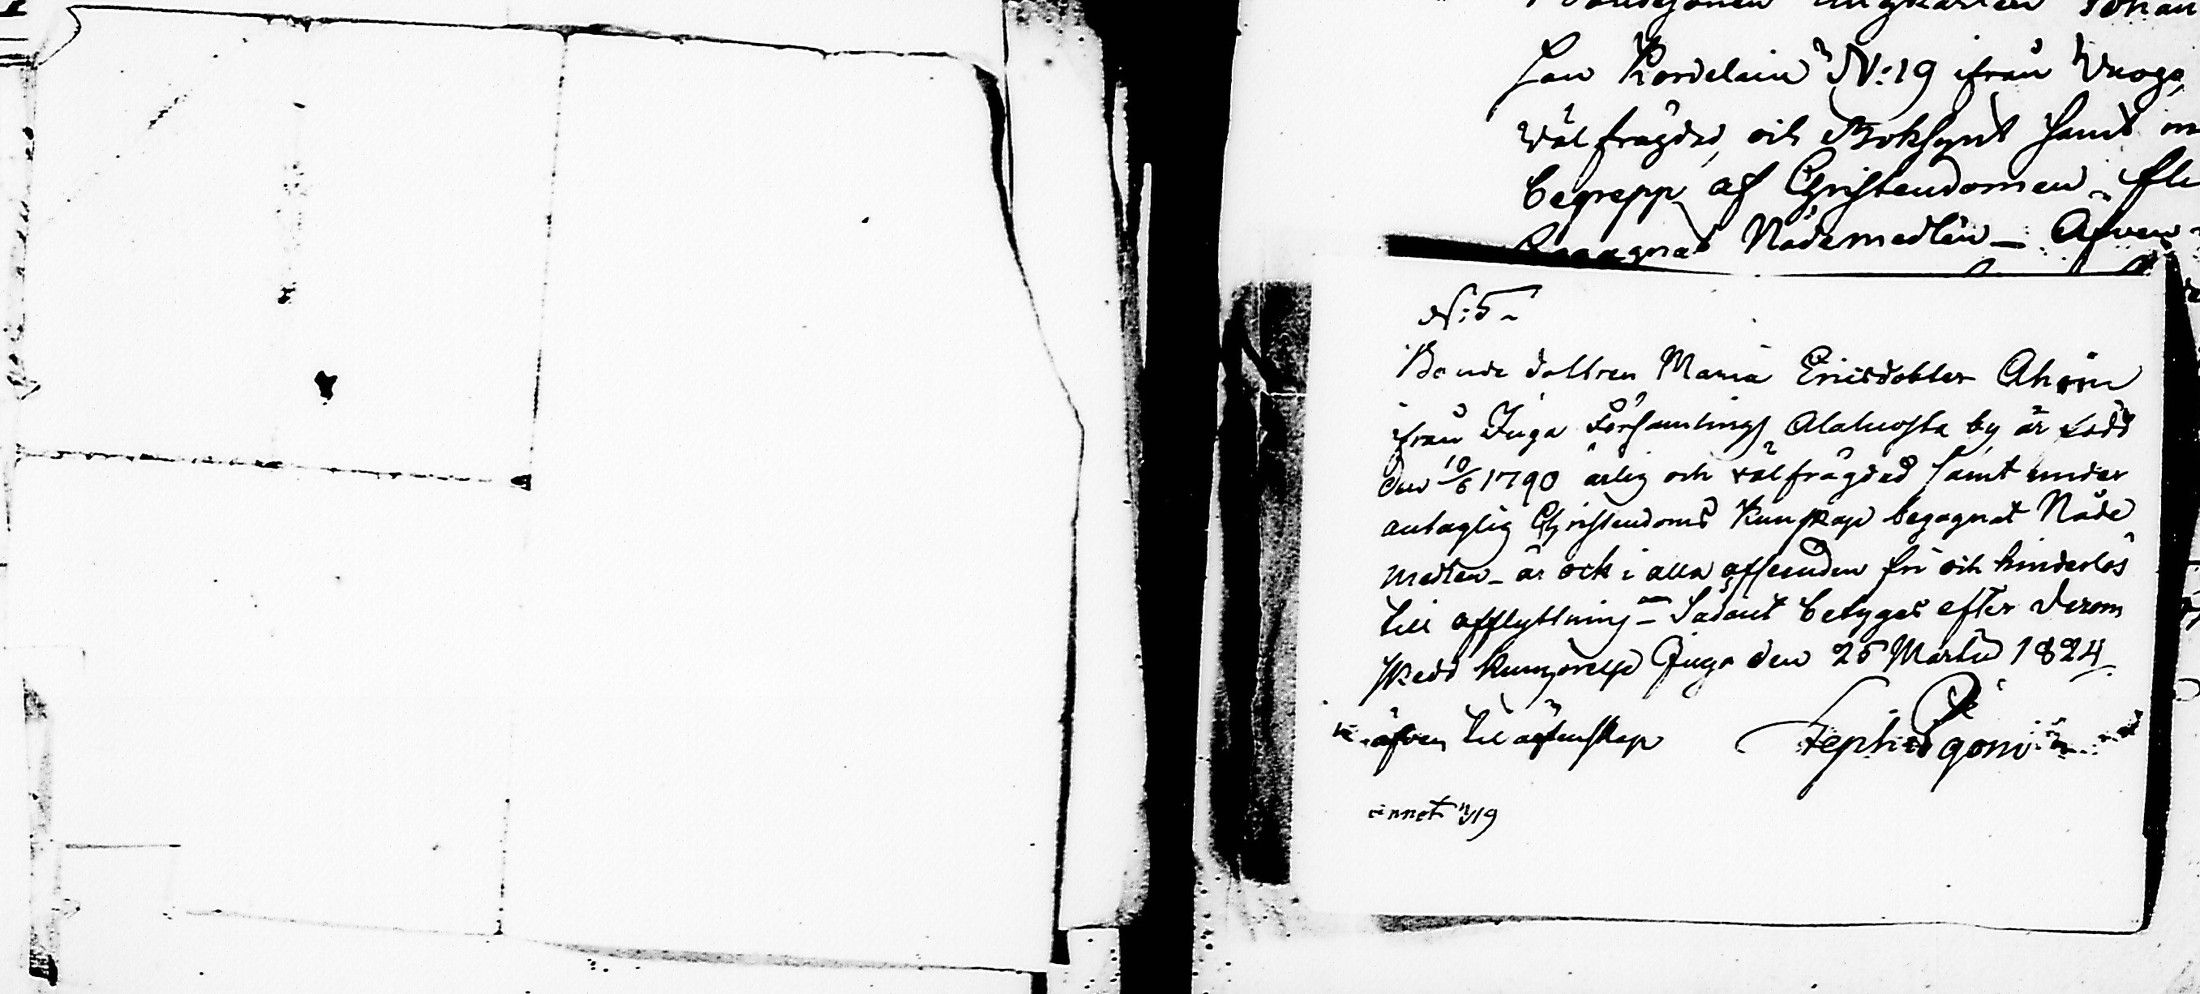 Johan
son Kordelain N:19 ifrån
Väl frägdad, och Boksynt samt
begrepp af Christendomen
begagnat Nådemedlen _ Äfven
N:5 _
Bonde dottren Maria Ericsdotter Ahoin
ifrån Juga Församlings Alaluosta by är född
den 10/6 1790 ärlig och välfrägdad samt under
antaglig Christendoms Kunskap begagnat Nåde
medlen _ är ock i alla afseenden fri och hinderlös
till afflyttning _ Sådant betygas efter derom
skedd kungörelse Juga den 25 Martii 1824
äfven til äktenskap